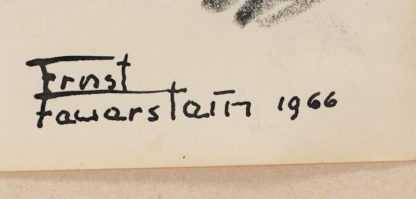 Ernst
Fawarstain 1966